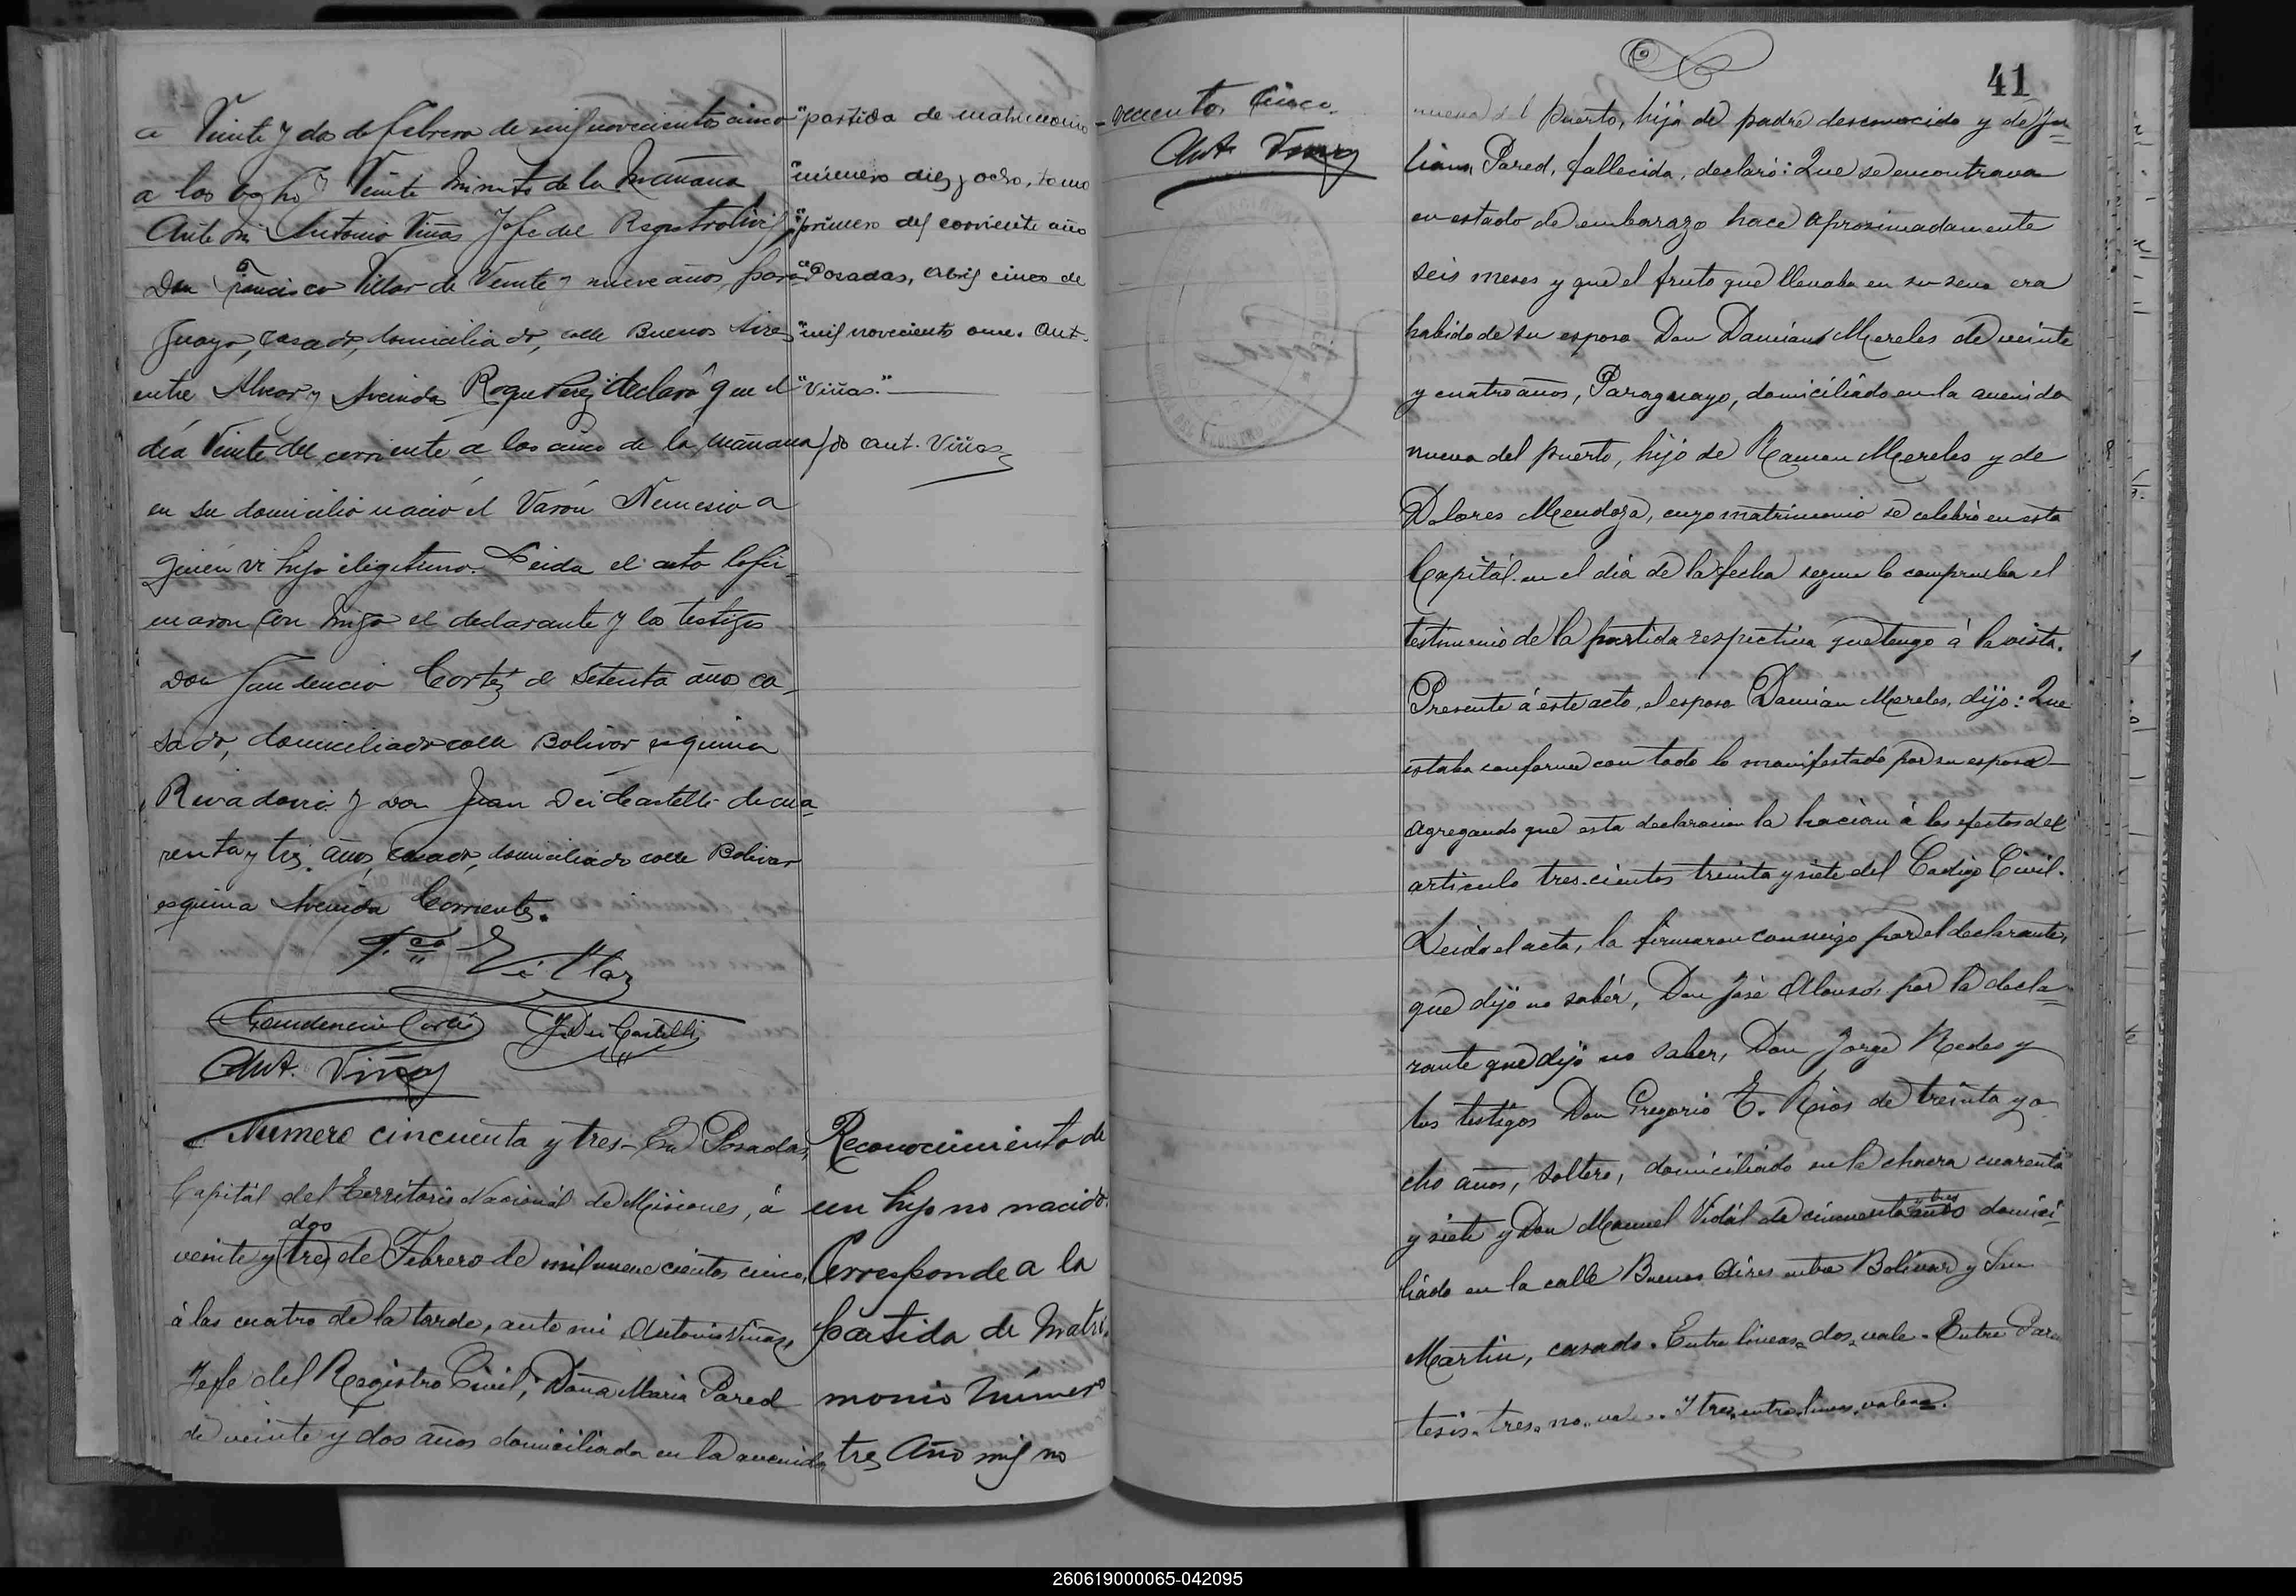 a Veinte y dos de febrero de mil novecientos cinco
a las ocho y Veinte minutos de la mañana
Ante mi Antonio Viñas Jefe del Registro Civil
Don Francisco Villar de Veinte y nueve años, para-
guayo, casado, domiciliado, calle Buenos Aires
entre Alvear y Avenida Roque Perez declaró que el
día Veinte del corriente a las cinco de la mañana
en su domicilio nació el Varón Nemesio a
quien vi hijo ilegitimo. Leida el acta la fir-
maron con migo el declarante y los testigos
Don Gaudencio Cortéz de setenta años ca-
sado, domiciliado calle Bolivar esquina
Rivadavia y Don Juan Dei Castelli de cua-
renta y tres años, casado, domiciliado calle Bolivar
esquina Avenida Corrientes.
F.co Villar
Gaudencio Cortés J. Dei Castelli
Ant. Viñas
"partida de matrimonio
"numero diez y ocho, tomo
"primero del corriente año
"Posadas, Abril cinco de
"mil novecientos once. Ant.
"Viñas."
fdo Ant. Viñas
Numero cincuenta y tres - En Posadas,
Capitál del Territorio Nacionál de Misiones, á
dos
veinte y (tres) de Febrero de mil nuevecientos cinco,
á las cuatro de la tarde, ante mi Antonio Viñas,
Jefe del Registro Civil, Doña Maria Pared
de veinte y dos años domiciliada en la avenida
Reconocimiento de
un hijo no nacido.
Corresponde a la
partida de Matri-
monio Número
tres Año mil no
-vecientos Cinco.
Ant. Viñas
41
nueva del Puerto, hija de padre desconocido y de Ju-
liana Pared, fallecida, declaró: Que se encontrava
en estado de embarazo hace aprosimadamente
seis meses y que el fruto que llevaba en su seno era
habido de su esposo Don Damián Mereles de veinte
y cuatro años, Paraguayo, domiciliado en la avenida
nueva del puerto, hijo de Ramon Mereles y de
Dolores Mendoza, cuyo matrimonio se celebró en esta
Capitál en el día de la fecha segun lo comprueba el
testimonio de la partida respectiva que tengo á la vista.
Presente á este acto, el esposo Damián Mereles, dijo: Que
estaba conforme con todo lo manifestado por su esposa
agregando que esta declaracion la hacian á los efectos del
articulo tres-cientos treinta y siete del Codigo Civil.
Leida el acta, la firmaron conmigo por el declarante,
que dijo no sabér, Don José Alonso, por la decla-
rante que dijo no saber, Don Jorge Redes y
los testigos Don Gregorio E. Rios de treinta y o
cho años, soltero, domiciliado en la chacra cuarenta
y tres
y siete y Don Manuel Vidál de cincuenta años domici-
liado en la calle Buenos Aires entre Bolivar y San
Martin, casado. Entre lineas, dos, vale. Entre Paren
tesis, tres, no, vale. Y tres, entre lineas, valen.